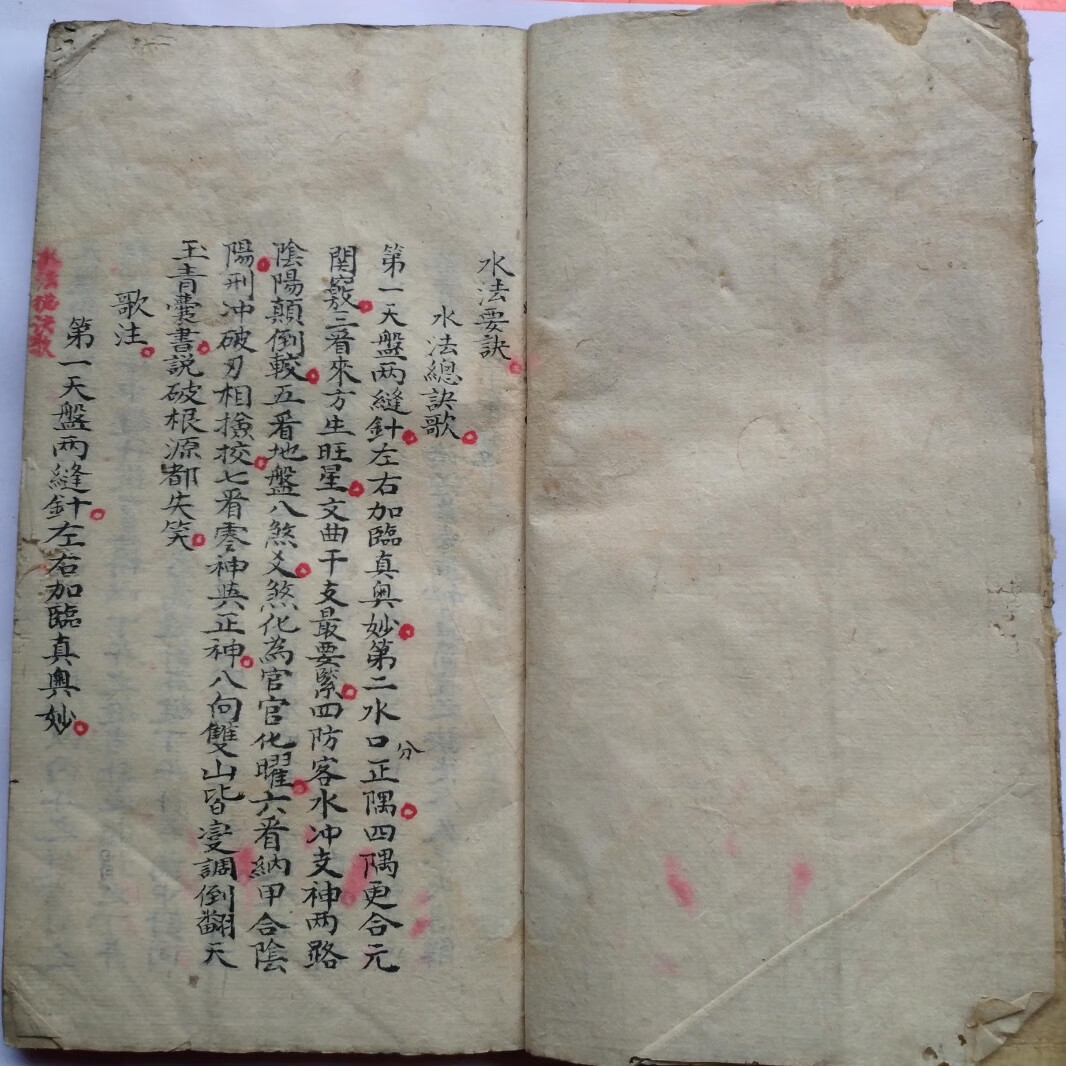 水法要訣
水法總訣歌
第一天盤两縫針左右加臨真奥妙第二水口分正隅四隅更合元
関竅三看來方生旺星文曲干支最要緊四防客水冲支神两路
陰陽顛倒較五看地盤八煞爻煞化為官官化曜六看納甲合陰
陽刑冲破刃相撿挍七看零神與正神八向雙山皆变調倒翻天
玉青囊書説破根源都失笑
歌注
第一天盤两縫針左右加臨真奥妙
水法秘訣歌